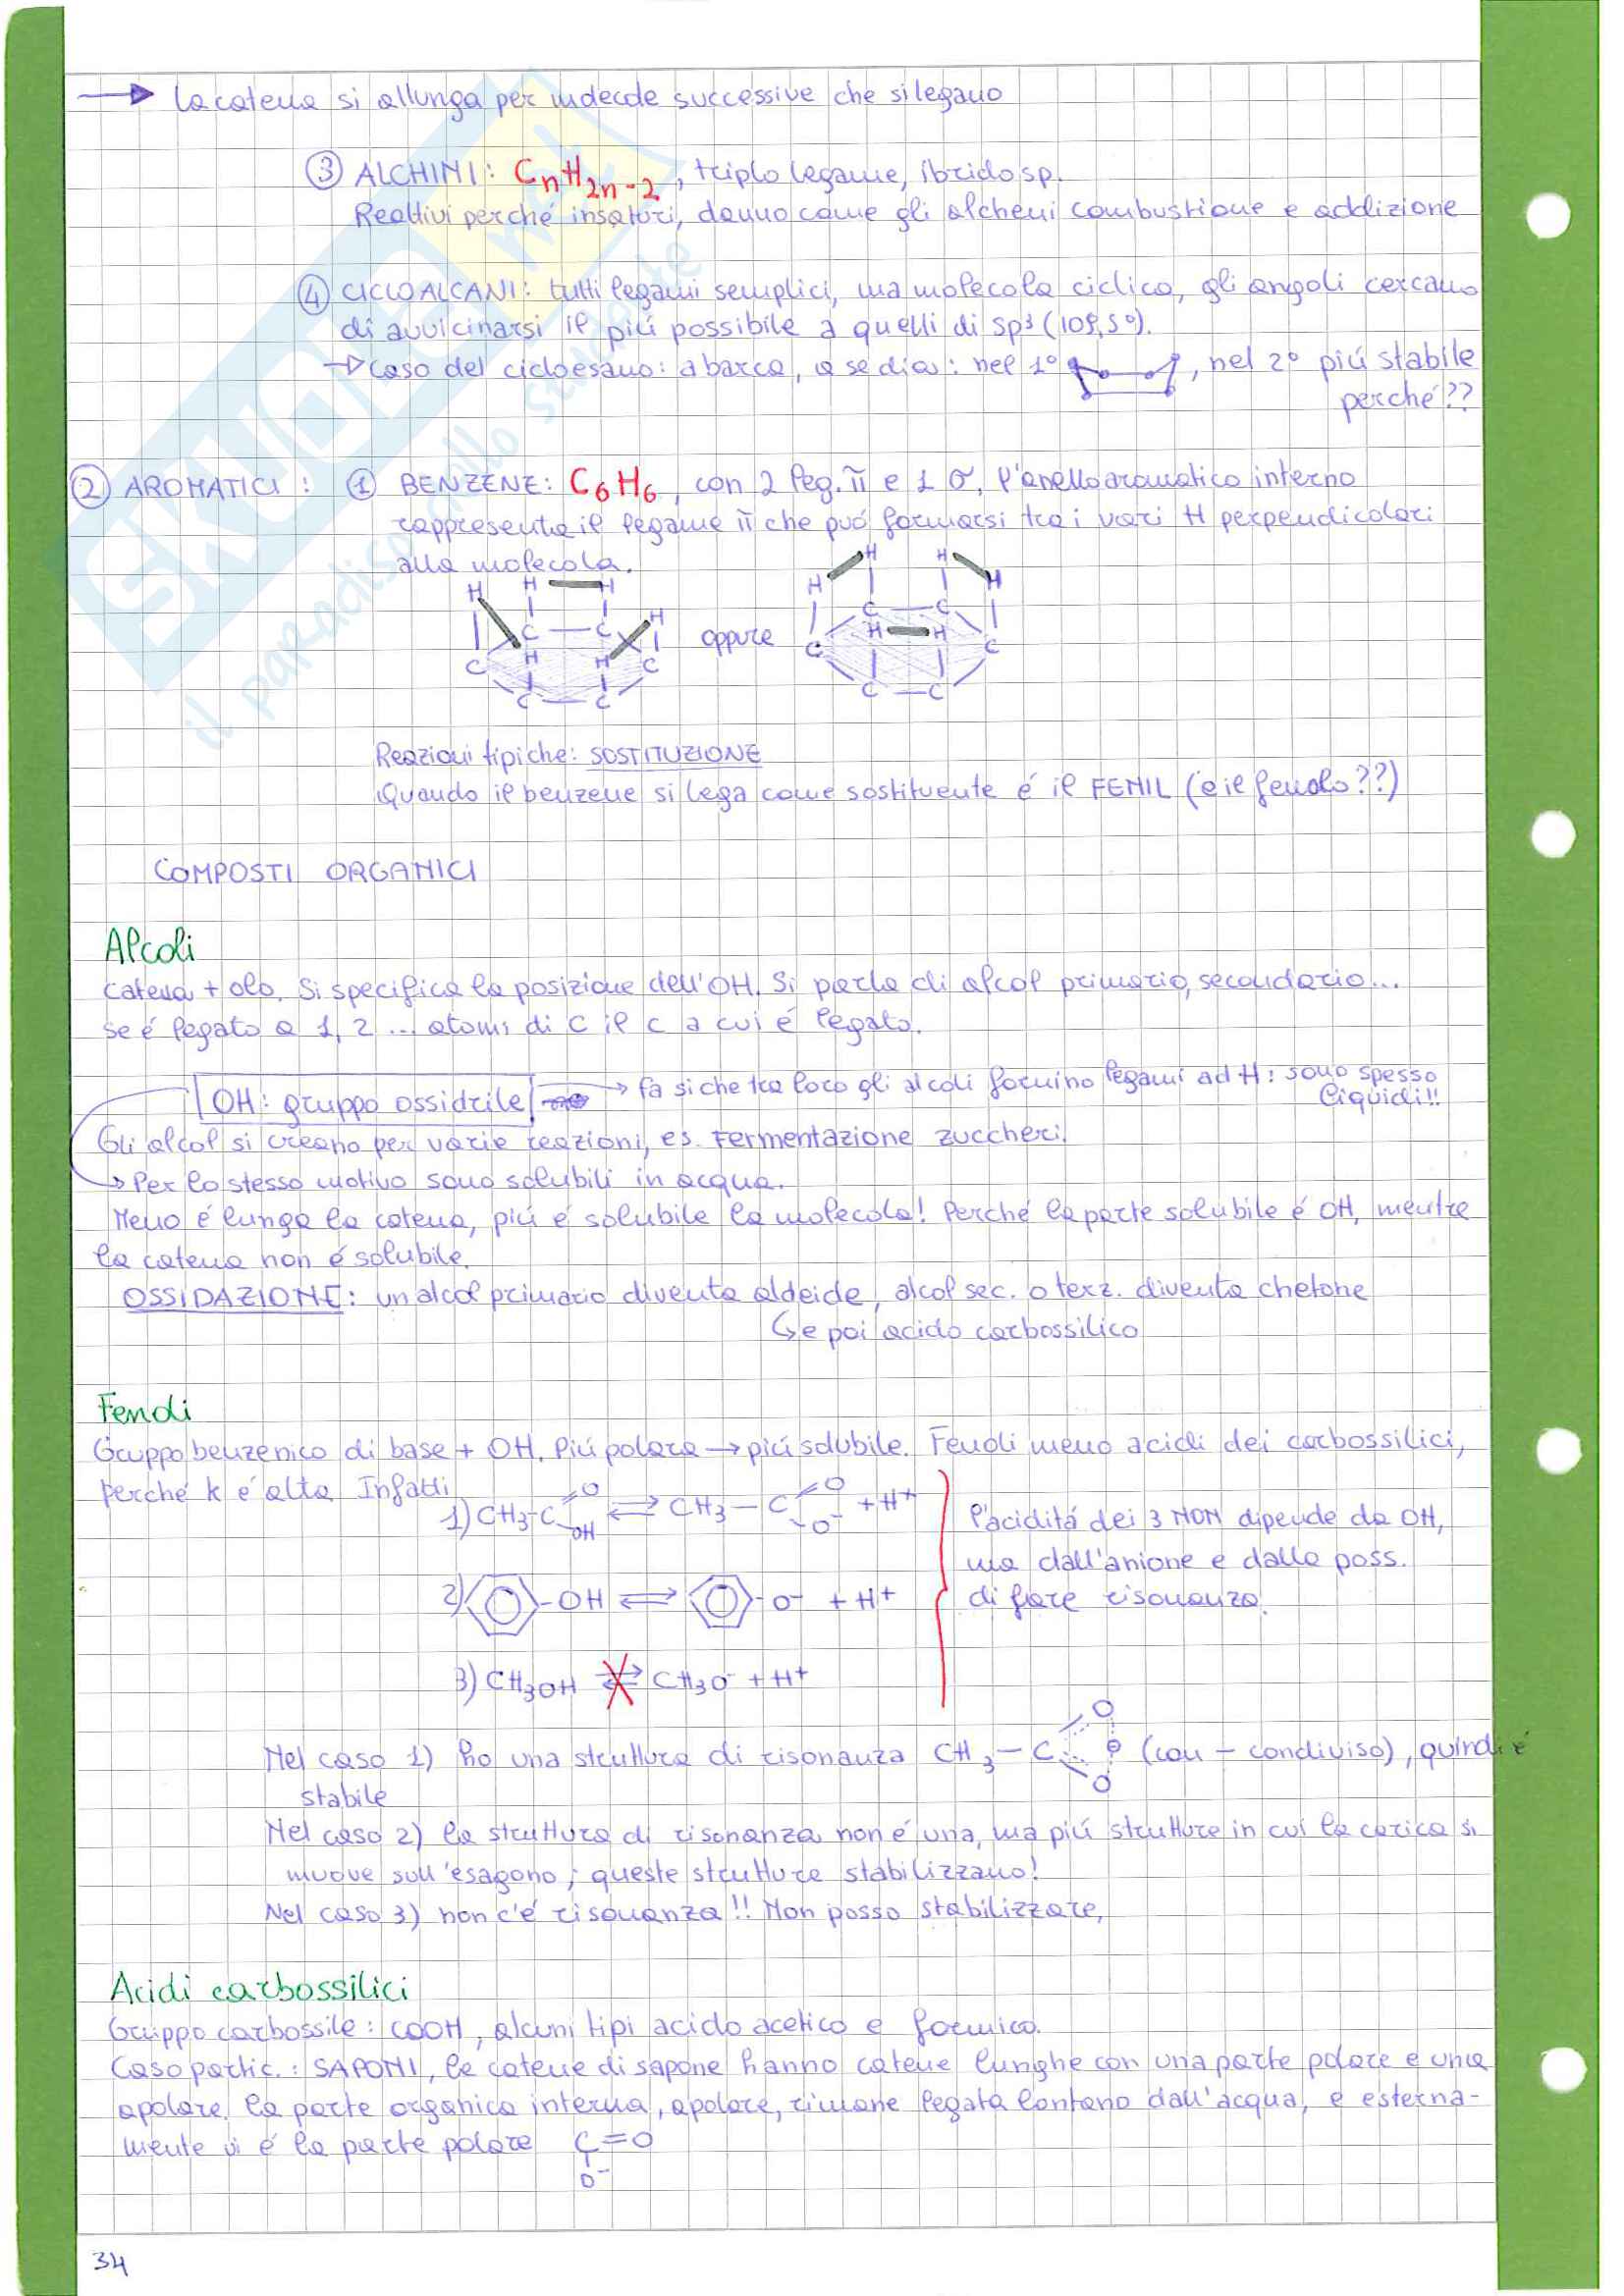 → la catena si allunga per indecde successive che si legano
③ ALCHINI: CnH2n-2, triplo legame, ibrido sp.
Reattivi perché insaturi, danno come gli alcheni combustione e addizione
④ CICLOALCANI: tutti legami semplici, ma molecola ciclica, gli angoli cercano
di avvicinarsi il piú possibile a quelli di sp³ (109,5°).
→ Caso del cicloesano: a barca, a sedia: nel 1° , nel 2° piú stabile
perché??
② AROMATICI: ① BENZENE: C6H6, con 2 leg. π e 1 σ, l'anello aromatico interno
rappresenta il legame π che può formarsi tra i vari H perpendicolari
alla molecola.
H H H H H H C C C C C C oppure H H H H H H C C C C C C
Reazioni tipiche: SOSTITUZIONE
Quando il benzene si lega come sostituente é il FENIL (e il fenolo??)
COMPOSTI ORGANICI
Alcoli
Catena + olo. Si specifica la posizione dell'OH. Si parla di alcol primario, secondario...
se é legato a 1, 2 ... atomi di C il C a cui é legato.
OH: gruppo ossidrile → fa si che tra loro gli alcoli formino legami ad H: sono spesso
liquidi!!
Gli alcol si creano per varie reazioni, es. Fermentazione zuccheri.
→ Per lo stesso motivo sono solubili in acqua.
Meno é lunga la catena, piú é solubile la molecola! Perché la parte solubile é OH, mentre
la catena non é solubile.
OSSIDAZIONE: un alcol primario diventa aldeide, alcol sec. o terz. diventa chetone
↳ e poi acido carbossilico
Fenoli
Gruppo benzenico di base + OH. Piú polare → piú solubile. Fenoli meno acidi dei carbossilici,
perché k é alta Infatti
1) CH3-C =O OH ⇌ CH3-C =O O⁻ + H⁺
2) -OH ⇌ -O⁻ + H⁺
3) CH3OH ⇌ CH3O⁻ + H⁺
l'acidità dei 3 NON dipende da OH,
ma dall'anione e dalla poss.
di fare risonanza.
Nel caso 1) ho una struttura di risonanza CH3-C O ⊖ O (con - condiviso), quindi é
stabile
Nel caso 2) la struttura di risonanza non é una, ma piú strutture in cui la carica si
muove sull'esagono; queste strutture stabilizzano!
Nel caso 3) non c'é risonanza!! Non posso stabilizzare.
Acidi carbossilici
Gruppo carbossile: COOH, alcuni tipi acido acetico e formico.
Caso partic.: SAPONI, le catene di sapone hanno catene lunghe con una parte polare e una
apolare. La parte organica interna, apolare, rimane legata lontano dall'acqua, e esterna-
mente vi é la parte polare C=O
O⁻
34
SKUOLA.net
il paradiso dello studente